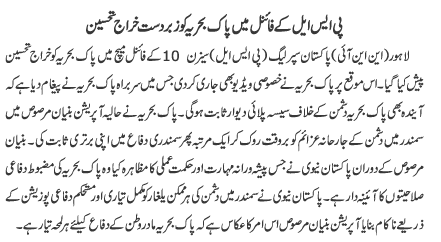 پی ایس ایل کے فائنل میں پاک بحریہ کو زبردست خراج تحسین
لاہور (این این آئی) پاکستان سپر لیگ (پی ایس ایل) سیزن 10 کے فائنل میچ میں پاک بحریہ کو خراج تحسین
پیش کیا گیا۔ اس موقع پر پاک بحریہ نے خصوصی ویڈیو بھی جاری کر دی جس میں سربراہ پاک بحریہ نے پیغام دیا ہے کہ
آیندہ بھی پاک بحریہ دشمن کے خلاف سیسہ پلائی دیوار ثابت ہو گی۔ پاک بحریہ نے حالیہ آپریشن بنیان مرصوص میں
سمندر میں دشمن کے جارحانہ عزائم کو بروقت روک کر ایک مرتبہ پھر سمندری دفاع میں اپنی برتری ثابت کی۔ بنیان
مرصوص کے دوران پاکستان نیوی نے جس پیشہ ورانہ مہارت اور حکمت عملی کا مظاہرہ کیا وہ پاک بحریہ کی مضبوط دفاعی
صلاحیتوں کا آئینہ دار ہے۔ پاکستان نیوی نے سمندر میں دشمن کی ہر ممکن یلغار کو مکمل تیاری اور مستحکم دفاعی پوزیشن کے
ذریعے ناکام بنایا آپریشن بنیان مرصوص اس امر کا عکاس ہے کہ پاک بحریہ مادر وطن کے دفاع کیلئے ہر لمحہ تیار ہے۔